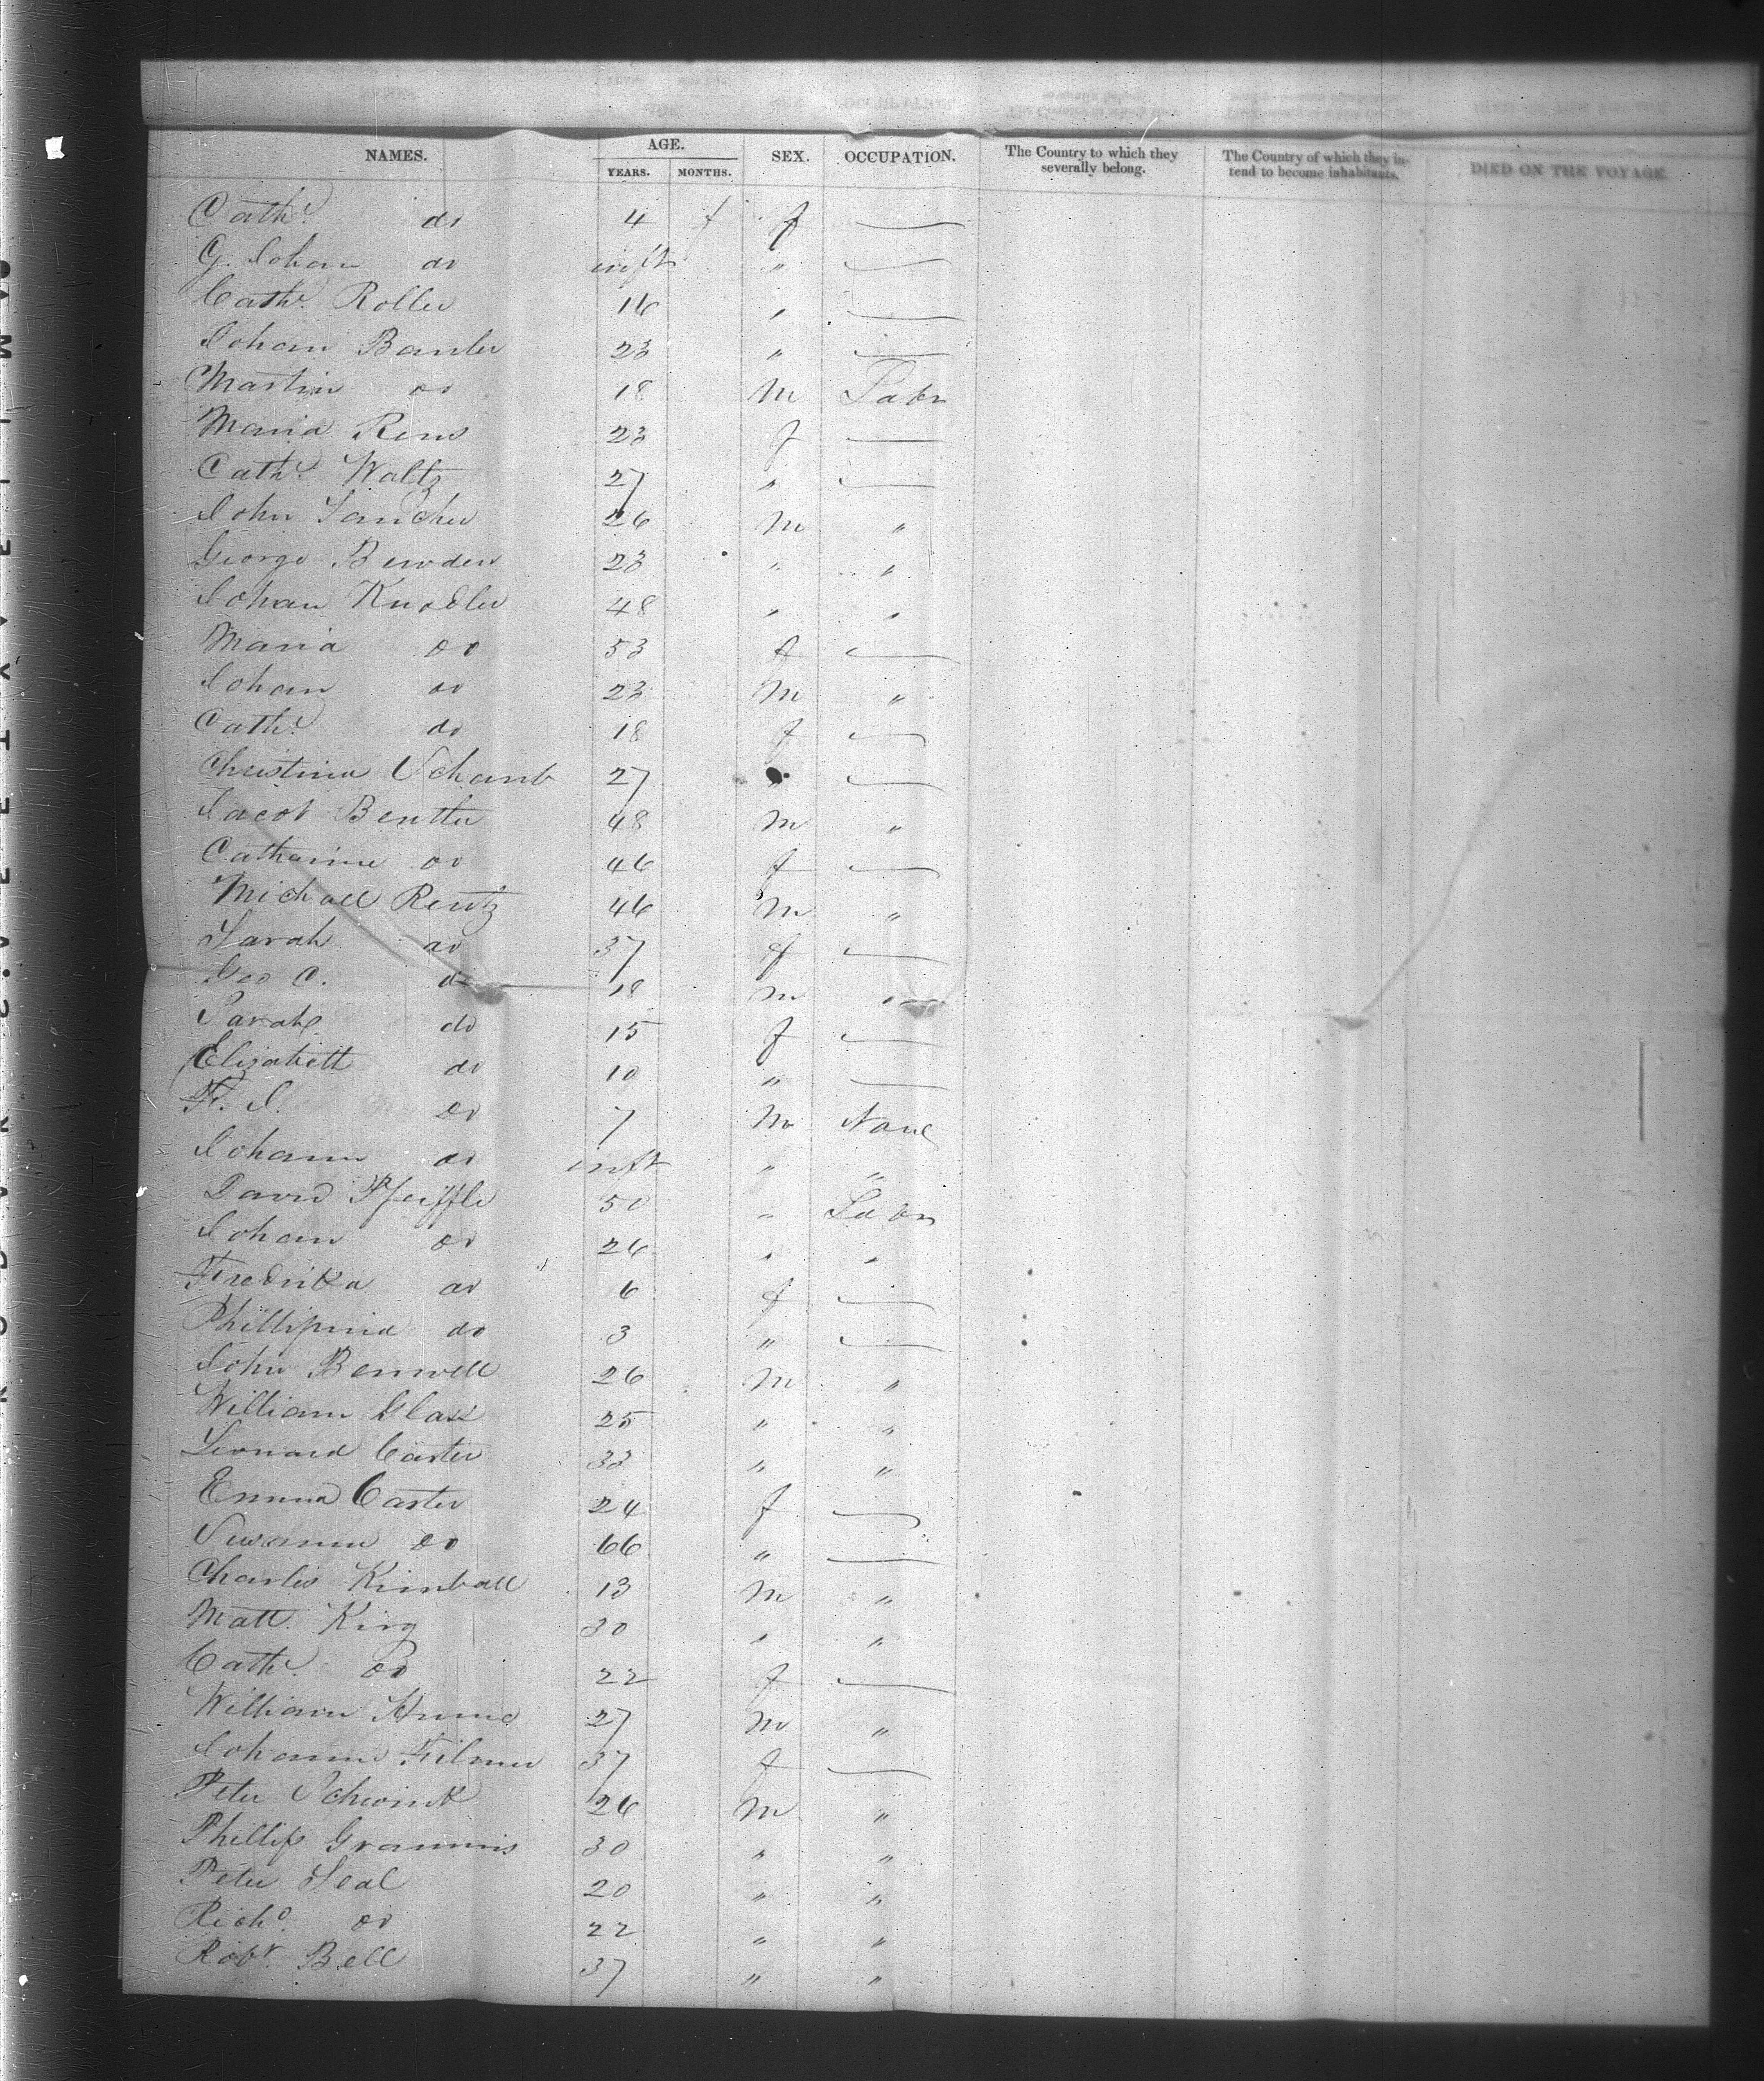 NAMES. AGE. YEARS. MONTHS. SEX. OCCUPATION. The Country to which they severally belong. The Country of which they intend to become inhabitants. DIED ON THE VOYAGE.
Cathe. do 4 f f —
G. Johan do inft " —
Cathe. Roller 16 " —
Johan Banler 23 " —
Martin do 18 m Labr
Maria Rens 23 f —
Cathe. Waltz 27 " —
John 26 m "
George Bewden 23 " "
Johan Knodler 48 " "
Maria do 53 f —
Johan do 23 m "
Cathe. do 18 f —
Christina Schamb 27 " —
Jacob Bentler 48 m "
Catharine do 46 f —
Michael Rentz 46 m "
Sarah do 37 f —
Geo C. do 18 m "
Sarah do 15 f —
Elizabeth do 10 " —
F. J. do 7 m None
Johann do inft " "
David Pfeiffle 50 " Labr
Johan do 26 " "
Fredrika do 6 f —
Phillipina do 3 " —
John Benwell 26 m "
William Glass 25 " "
Leonard Carter 33 " "
Emma Carter 24 f —
Susanna do 66 " —
Charles Kimball 13 m "
Matt. King 30 " "
Cathe. do 22 f —
William Hume 27 m "
Johanna Filmer 37 f —
Peter Schwink 26 m "
Phillip Grammis 30 " "
Peter Seal 20 " "
Richd. do 22 " "
Robt. Bell 37 " "